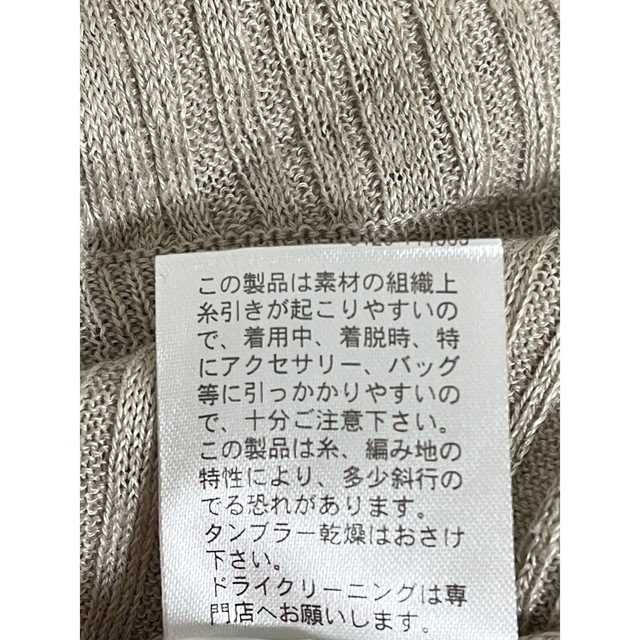 この製品は素材の組織上
糸引きが起こりやすいの
で、着用中、着脱時、特
にアクセサリー、バッグ
等に引っかかりやすいの
で、十分ご注意下さい。
この製品は糸、編み地の
特性により、多少斜行の
でる恐れがあります。
タンブラー乾燥はおさけ
下さい。
ドライクリーニングは専
門店へお願いします。